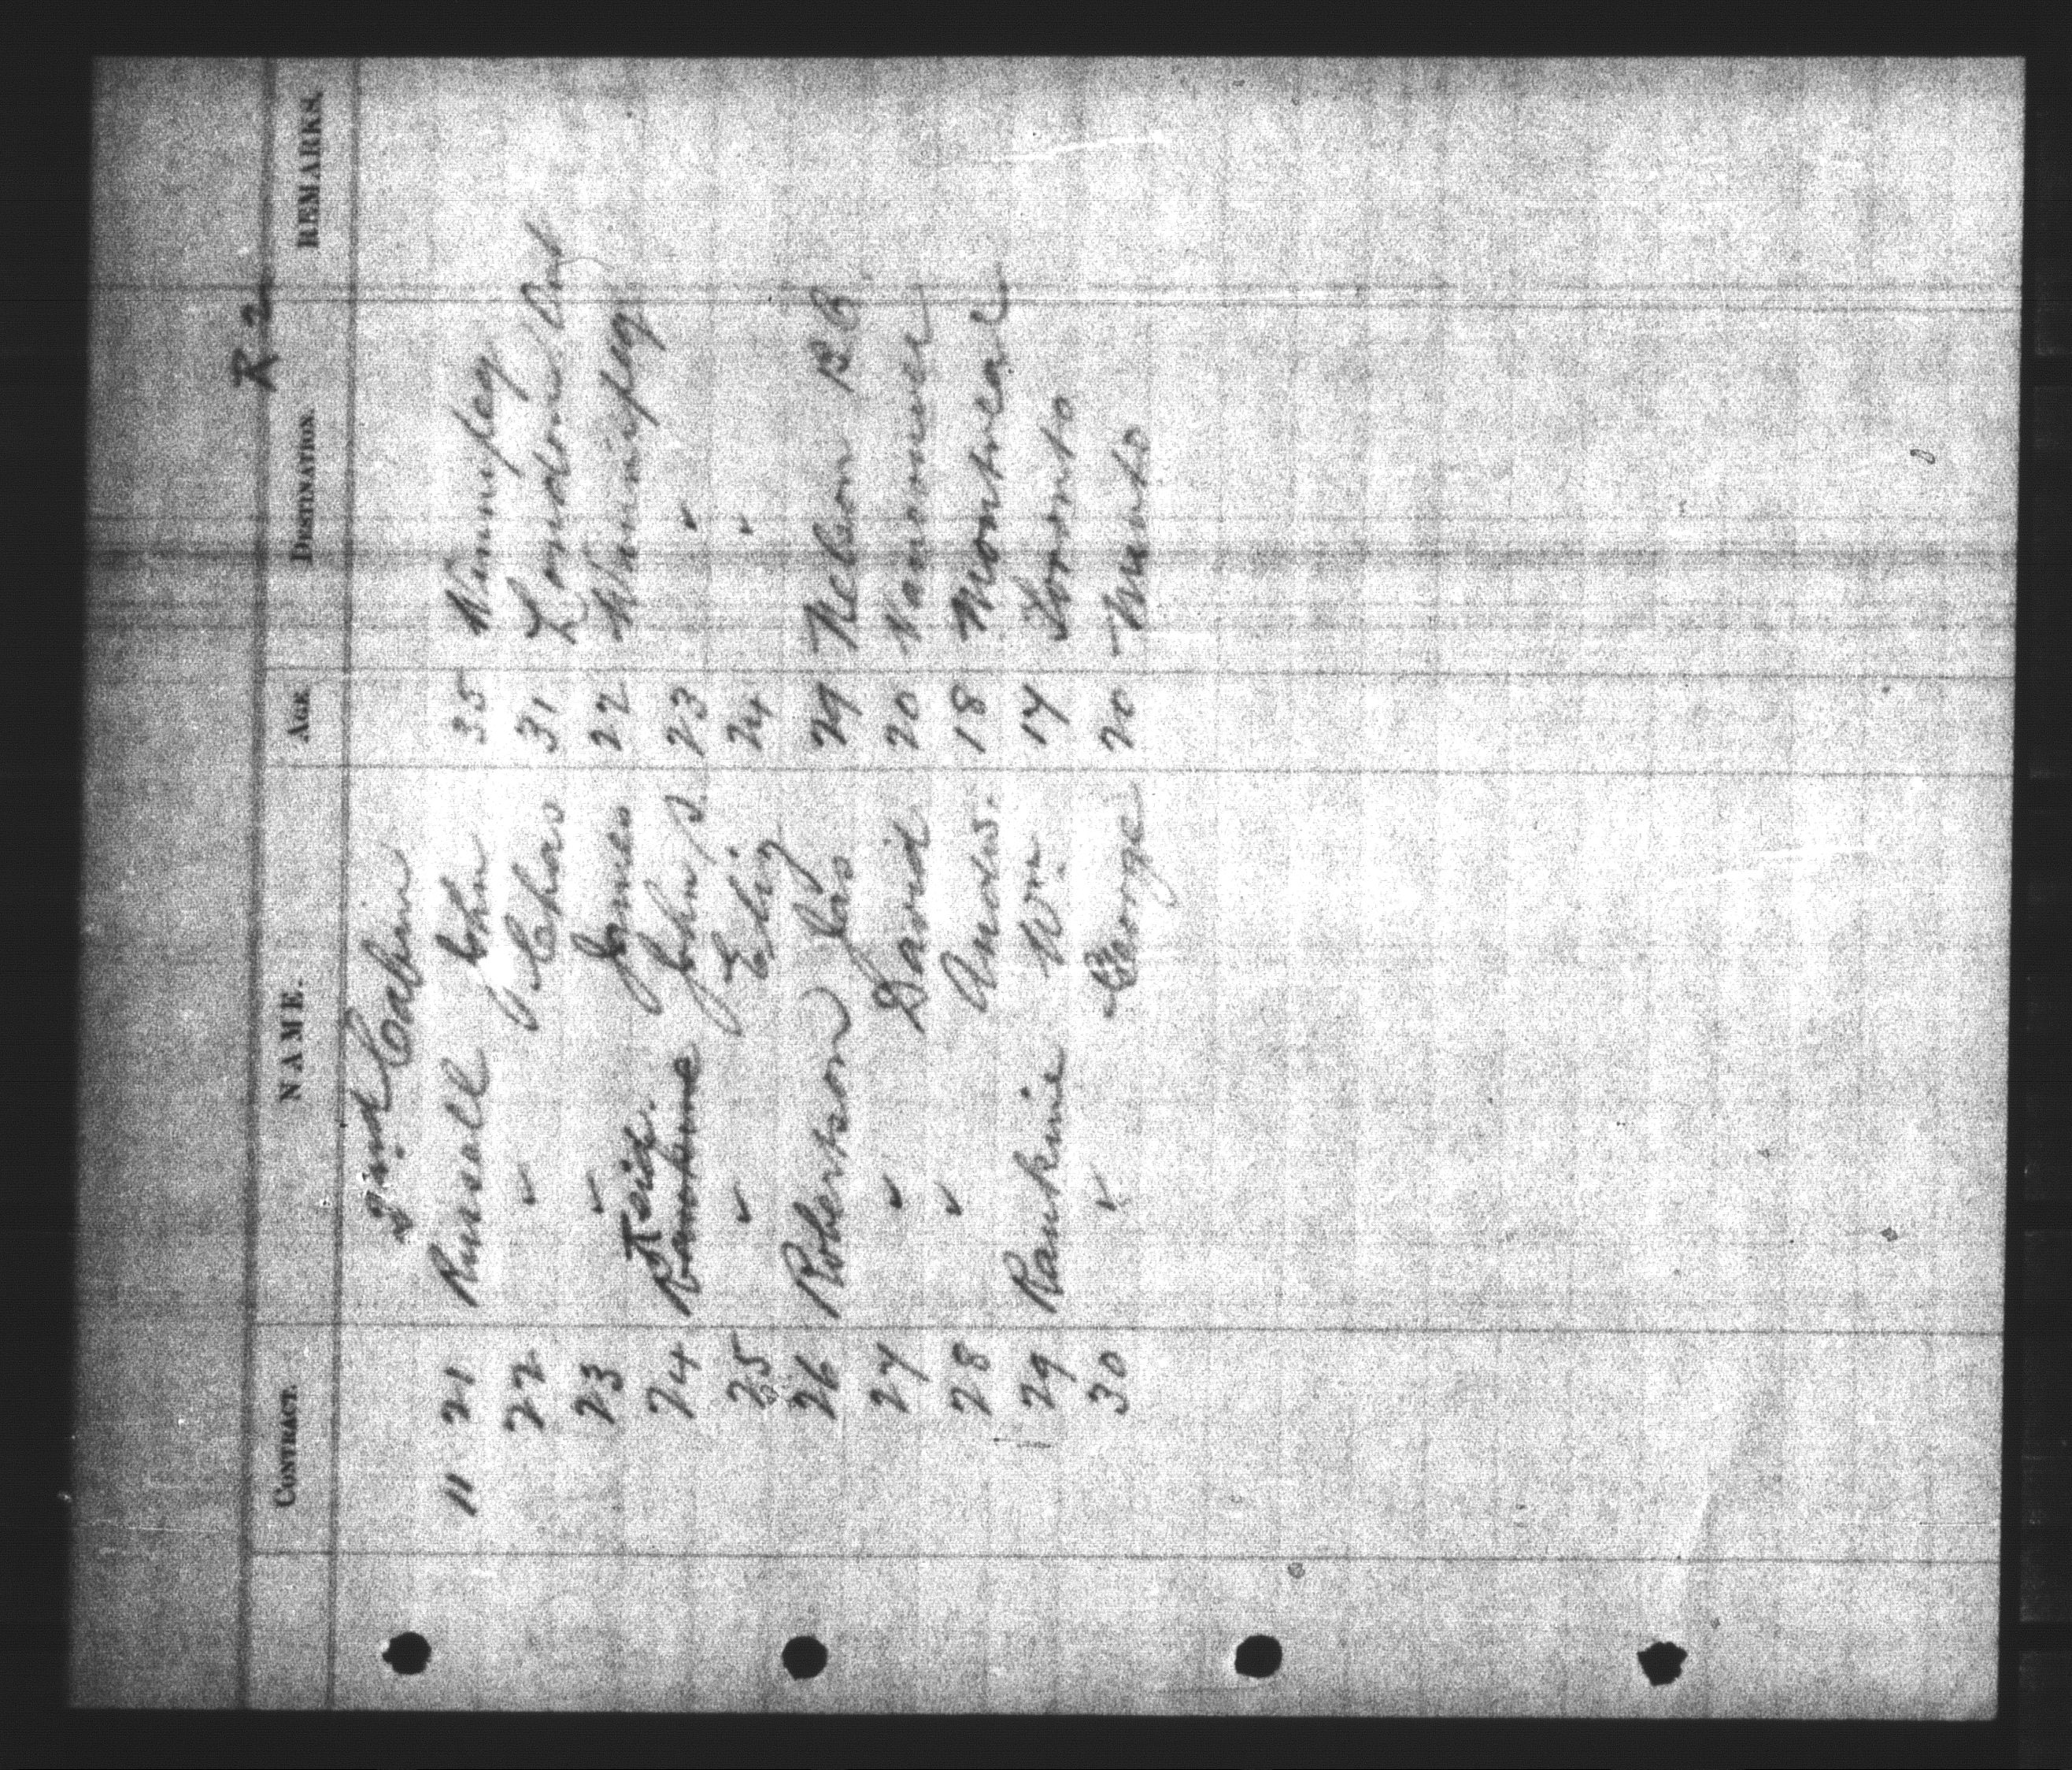 R 2
CONTRACT. NAME. AGE. DESTINATION. REMARKS.
2nd Cabin
11 21 Russell John 35 Winnipeg
22 " Chas 31 London Ont
23 " James 22 Winnipeg
Reid.
24 Rankine John S. 23 "
25 " Eliz 24 "
26 Robertson Jas 29 Nelson BC
27 " David 20 Vancouver
28 " Andw. 18 Montreal
29 Rankine Wm 17 Toronto
30 " George 20